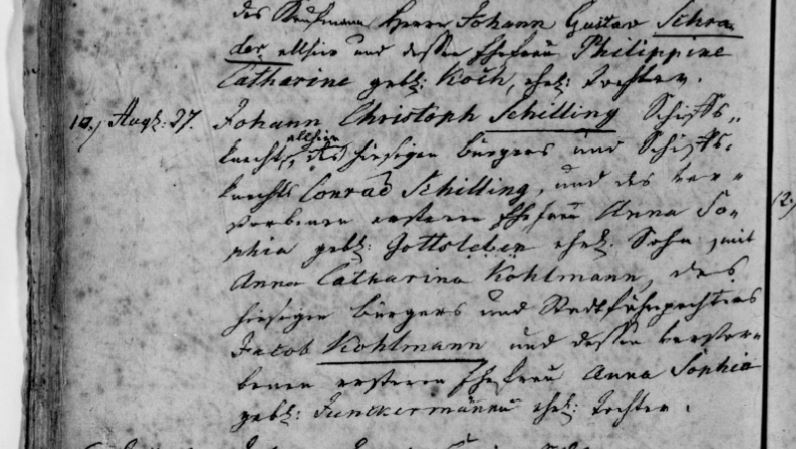 des Kaufmanns Herrn Johann Gustav Schra-
der allhier und dessen Ehefrau Philippine
Catharine gebh: Koch, ehel: Tochter.
10., Augt: 27. Johann Christoph Schilling Schiffs-
knecht allhier, des hiesigen Bürgers und Schiffs-
knechts Conrad Schilling, und des ver-
storbenen ersteren Ehefrau Anna So-
phia gebh: Gottsleben ehel: Sohn, mit
12.,
Anna Catharina Kohlmann, des
hiesigen Bürgers und Stadtfuhrpachters
Jacob Kohlmann und dessen verstor-
benen ersteren Ehefrau Anna Sophia
gebh: Junckermann ehel: Tochter.